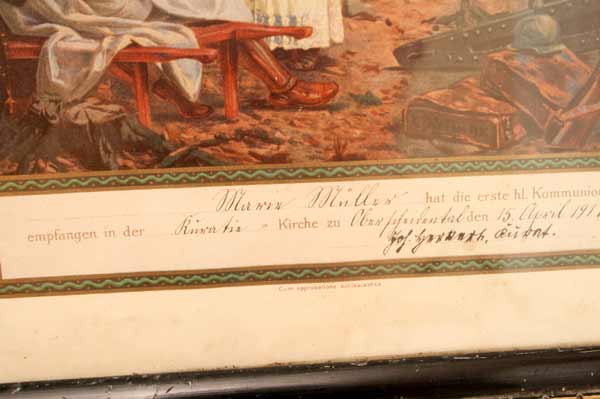 Marie Müller hat die erste hl. Kommunion
empfangen in der Kuratie - Kirche zu Oberscheidental den 15. April 191
Kurat.
Cum approbatione ecclesiastica